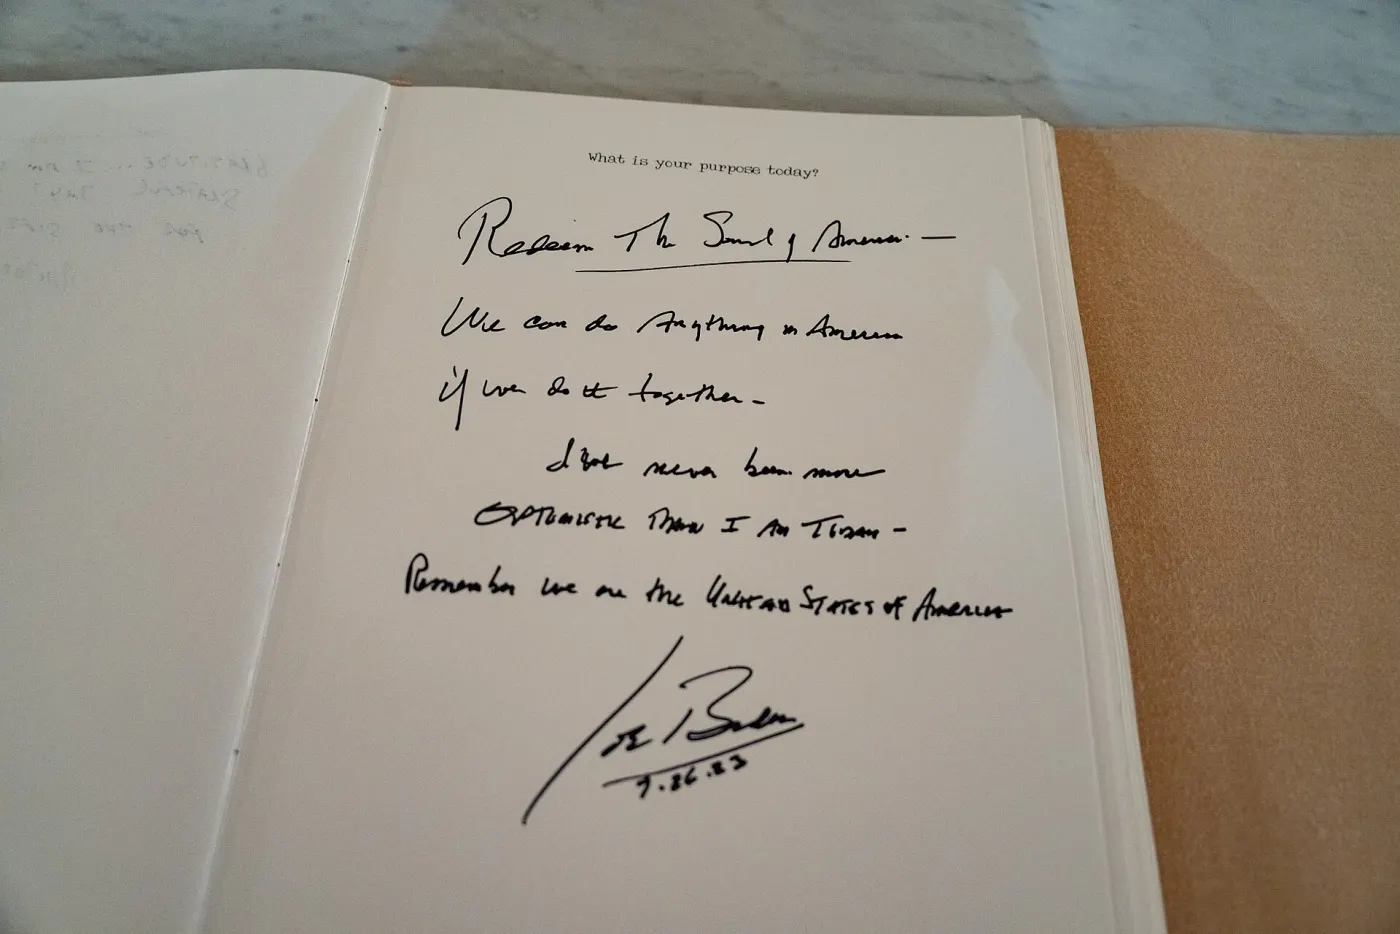 What is your purpose today?
Redeem The Soul of America. —
We can do Anything in America
if we do it together —
I've never been more
OPTIMISTIC Than I Am Today —
Remember we are the United States of America
Joe Biden